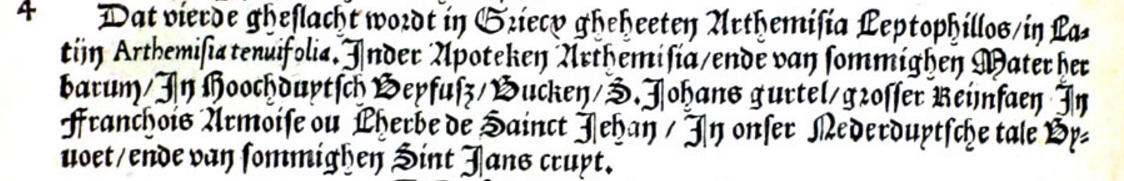 4 Dat vierde gheslacht wordt in Griecx gheheeten Arthemisia Leptophillos/in La-
tijn Arthemisia tenuifolia. Inder Apoteken Arthemisia/ende van sommighen Mater her
barum/In Hoochduytsch Beyfusz/Bucken/S. Johans gurtel/grosser Reijnfaen In
Franchois Armoise ou Lherbe de Sainct Jehan / In onser Nederduytsche tale By-
uoet/ende van sommighen Sint Jans cruyt.